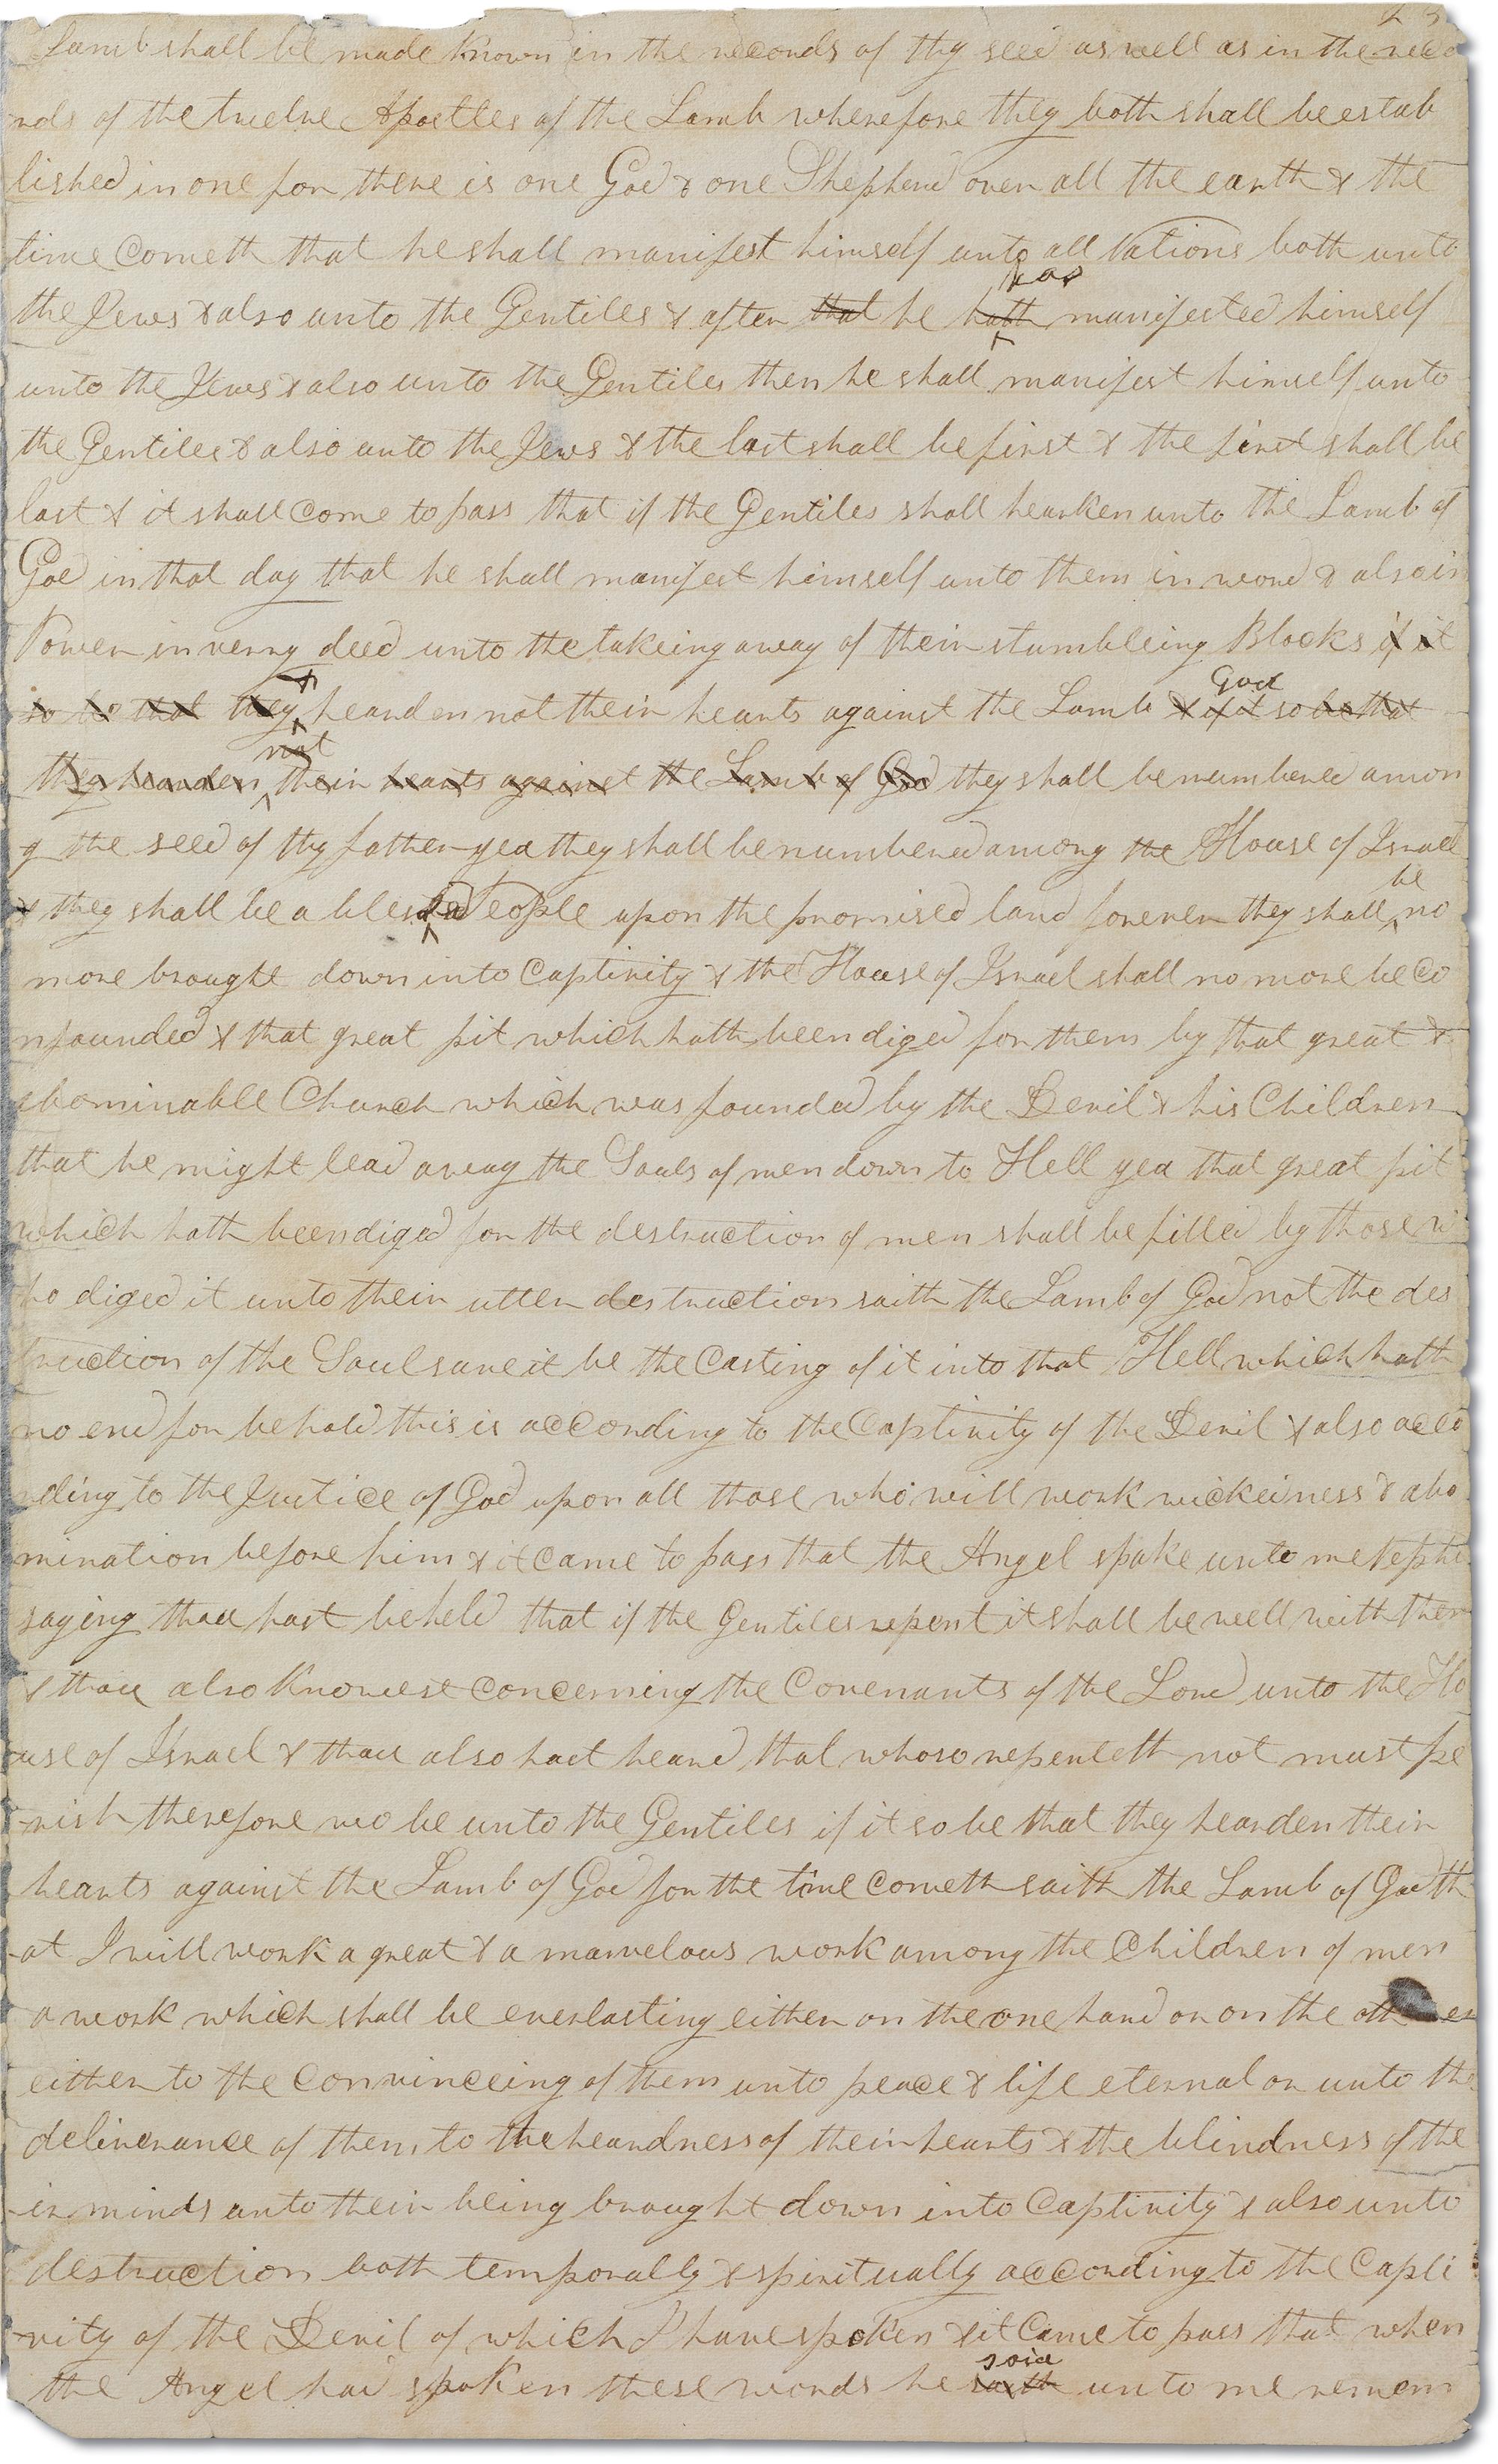 Lamb shall be made known in the records of thy seed as well as in the reco
rds of the twelve Apostles of the Lamb wherefore they both shall be estab
lished in one for there is one God & one Shepherd over all the earth & the
time cometh that he shall manifest himself unto all Nations both unto
has
the Jews & also unto the Gentiles & after that he hath manifested himself
unto the Jews & also unto the Gentiles then he shall manifest himself unto
the Gentiles & also unto the Jews & the last shall be first & the first shall be
last & it shall come to pass that if the Gentiles shall hearken unto the Lamb of
God in that day that he shall manifest himself unto them in word & also in
Power in verry deed unto the takeing away of their stumbleing Blocks if it
& God
so be that they hearden not their hearts against the Lamb & if it so be that
not
they hearden their hearts against the Lamb of God they shall be numbered amon
g the seed of thy father yea they shall be numbered among the House of Israel
be
& they shall be a blest People upon the promised land forever they shall no
more brought down into Captivity & the House of Israel shall no more be Co
nfounded & that great pit which hath been diged for them by that great &
abominable Church which was founded by the Devil & his Children
that he might lead away the Souls of men down to Hell yea that great pit
which hath been diged for the destruction of men shall be filled by those w
ho diged it unto their utter destruction saith the Lamb of God not the des
truction of the Soul save it be the Casting of it into that Hell which hath
no end for behold this is according to the Captivity of the Devil & also acco
rding to the Justice of God upon all those who will work wickedness & abo
mination before him & it came to pass that the Angel spake unto me Nephi
saying thou hast beheld that if the Gentiles repent it shall be well with them
& thou also knowest concerning the Covenants of the Lord unto the Ho
use of Israel & thou also hast heard that whoso repenteth not must pe
rish therefore wo be unto the Gentiles if it so be that they hearden their
hearts against the Lamb of God for the time cometh saith the Lamb of God th
at I will work a great & a marvelous work among the Children of men
a work which shall be everlasting either on the one hand or on the other
either to the Convinceing of them unto peace & life eternal or unto the
deliverance of them to the heardness of their hearts & the blindness of the
ir minds unto their being brought down into Captivity & also unto
destruction both temporally & spiritually according to the Capti
vity of the Devil of which I have spoken & it Came to pass that when
said
the Angel had spoken these words he saith unto me remem